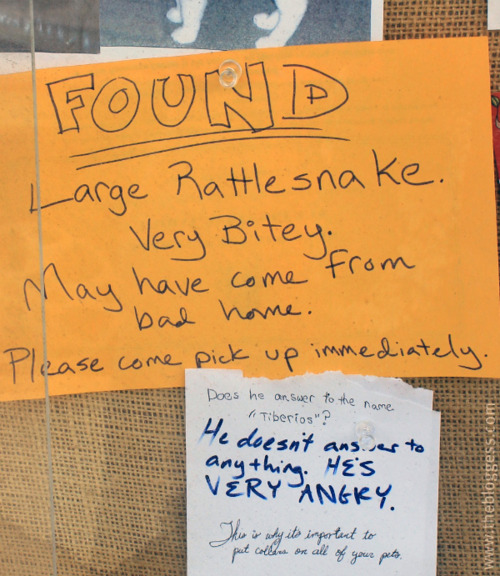 FOUND
Large Rattlesnake.
Very Bitey.
May have come from
bad home.
Please come pick up immediately.
Does he answer to the name
"Tiberios"?
He doesn't answer to
anything. HE'S
VERY ANGRY.
This is why it's important to
put collars on all of your pets.
www.thebloggess.com